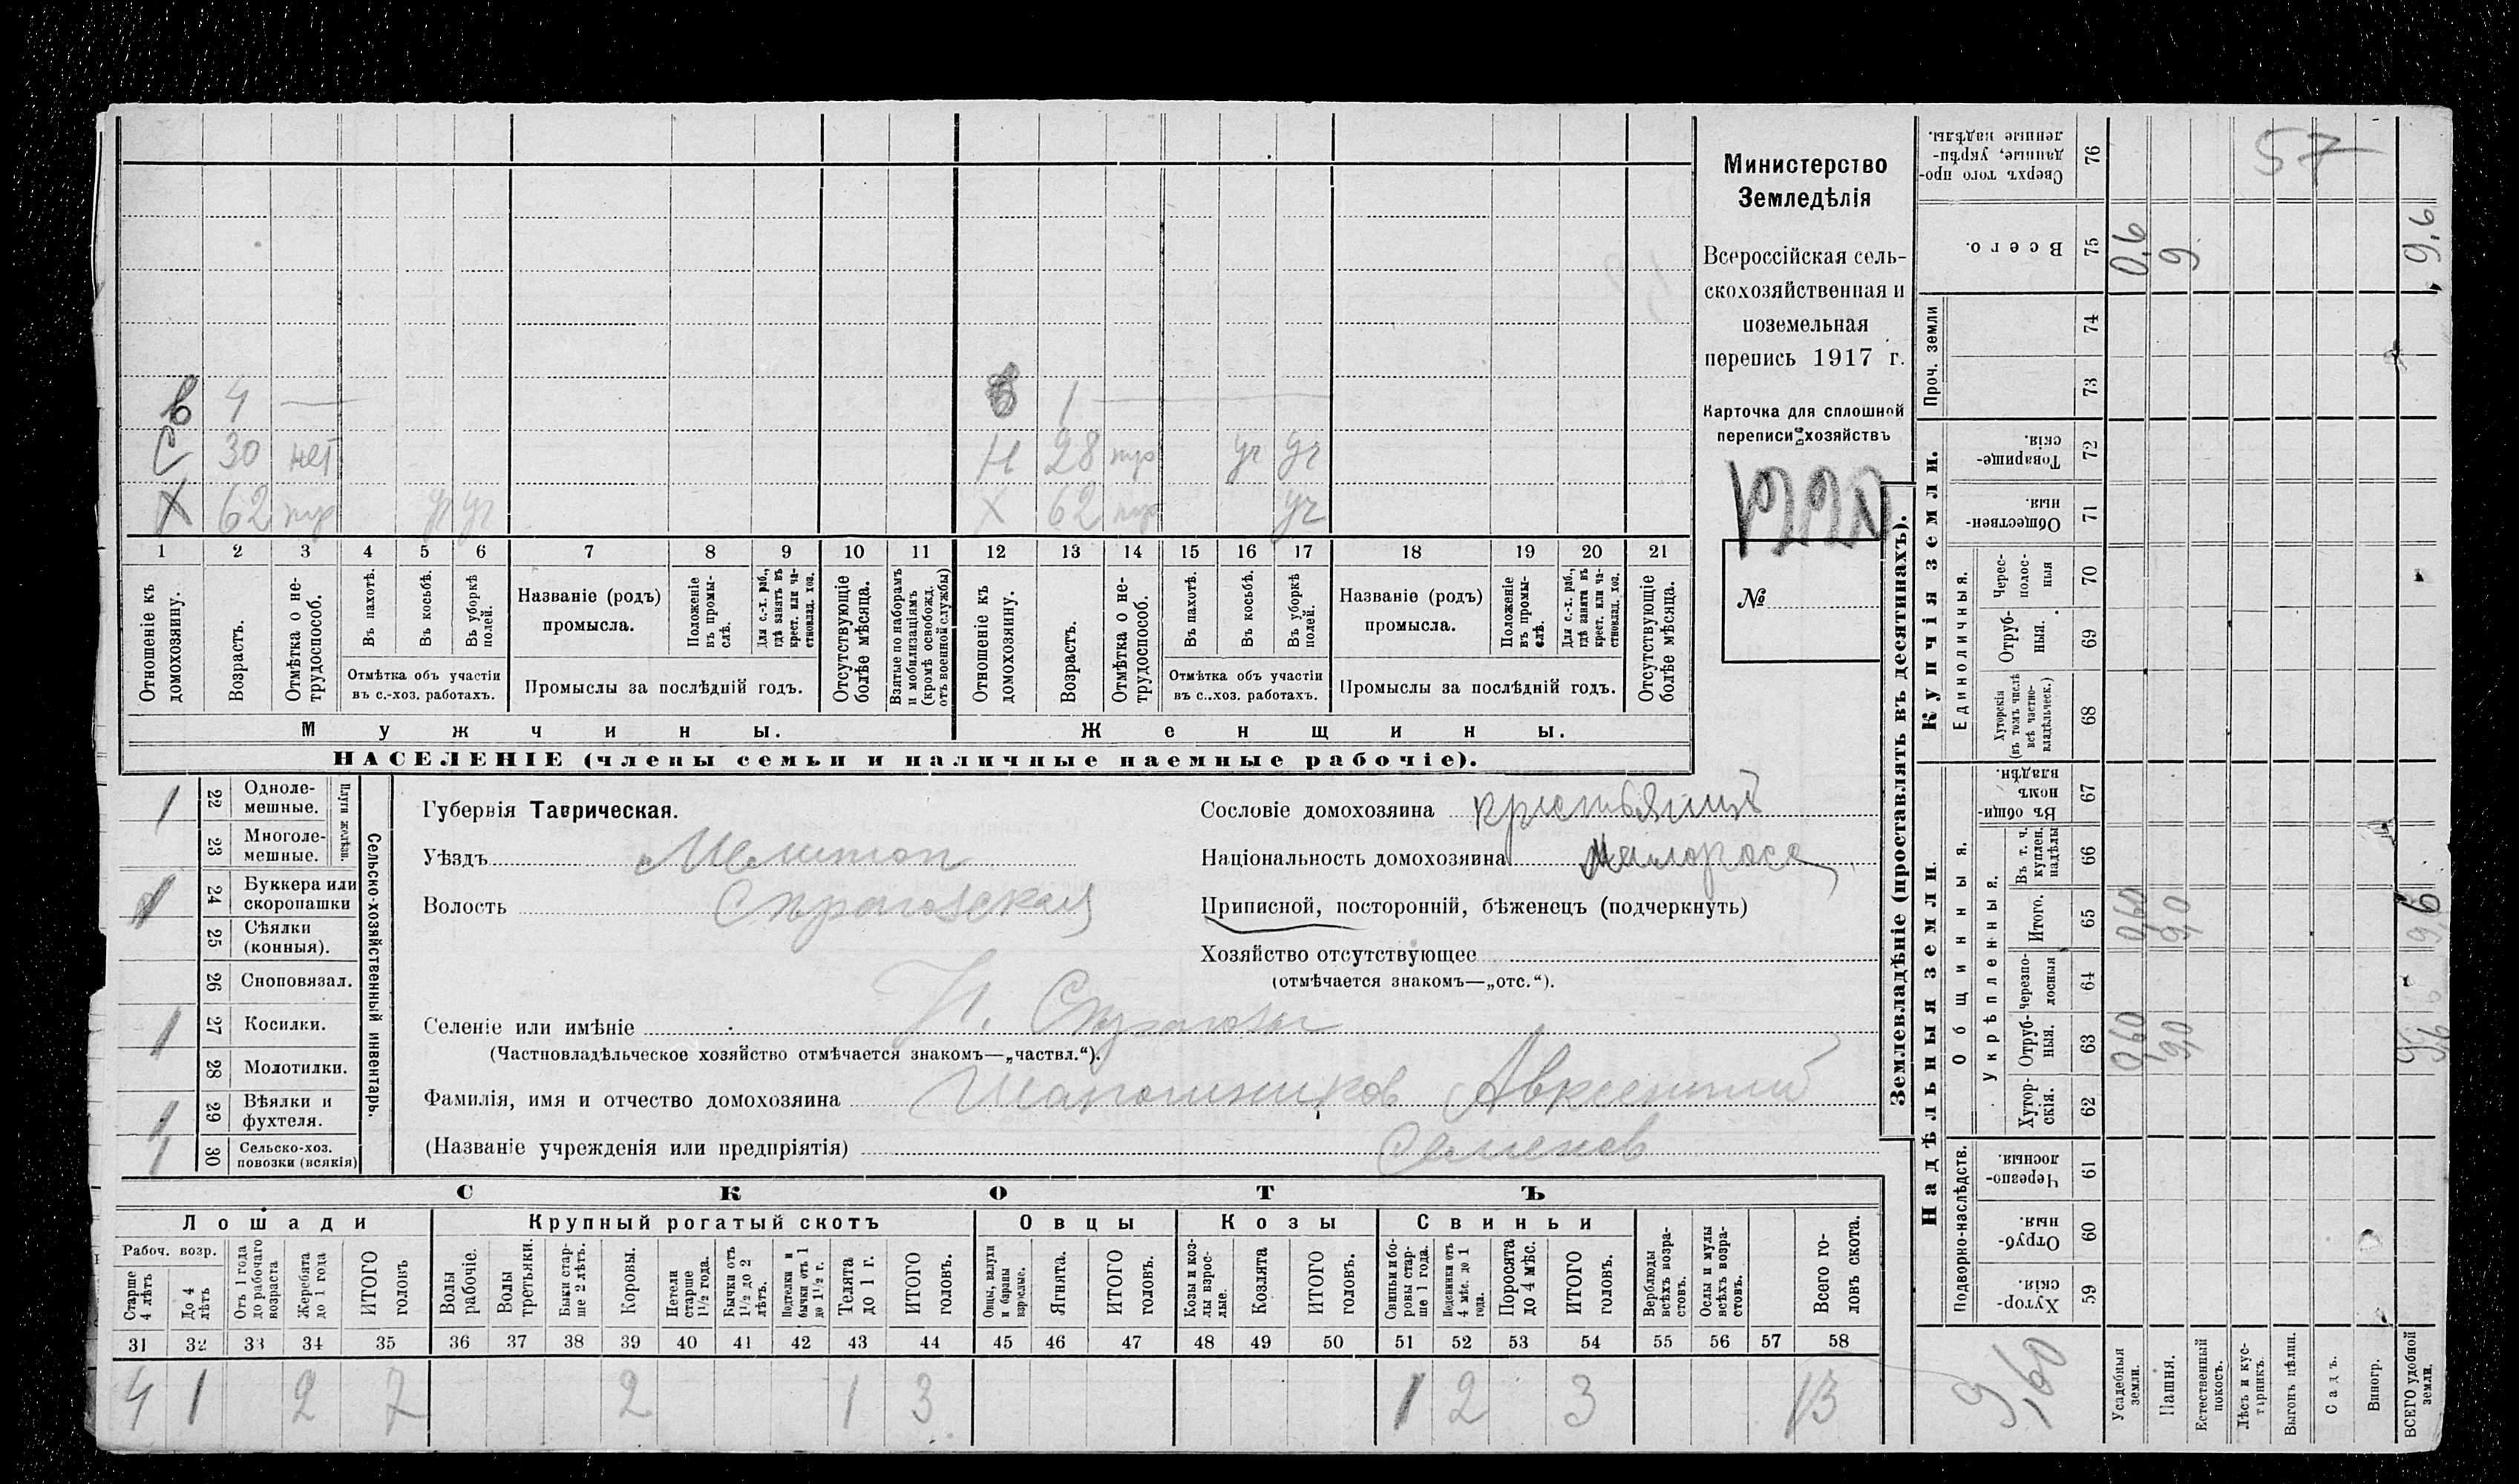 в 4 — в 1 —
С 30 нет Н 28 тр уч уч
Х 62 тр уч уч Х 62 тр уч
1 2 3 4 5 6 7 8 9 10 11 12 13 14 15 16 17 18 19 20 21
Отношеніе къ домохозяину.
Возрастъ.
Отмѣтка о не-трудоспособ.
Въ пахотѣ.
Въ косьбѣ.
Въ уборкѣ полей.
Отмѣтка объ участіи
въ с.-хоз. работахъ.
Названіе (родъ)
промысла.
Положеніе въ промы-слѣ.
Для с.-х. раб., гдѣ занятъ въ крест. или ча-стновлад. хоз.
Промыслы за послѣдній годъ.
Отсутствующіе болѣе мѣсяца.
Взятые по наборамъ и мобилизаціямъ (кромѣ освобожд. отъ военной службы)
Отношеніе къ домохозяину.
Возрастъ.
Отмѣтка о не-трудоспособ.
Въ пахотѣ.
Въ косьбѣ.
Въ уборкѣ полей.
Отмѣтка объ участіи
въ с.-хоз. работахъ.
Названіе (родъ)
промысла.
Положеніе въ промы-слѣ.
Для с.-х. раб., гдѣ занята въ крест. или ча-стновлад. хоз.
Промыслы за послѣдній годъ.
Отсутствующіе болѣе мѣсяца.
Мужчины. Женщины.
НАСЕЛЕНІЕ (члены семьи и наличные наемные рабочіе).
Министерство
Земледѣлія
Всероссійская сель-
скохозяйственная и
поземельная
перепись 1917 г.
Карточка для сплошной
переписи хозяйствъ
№
Сельско-хозяйственный инвентарь.
Плуги желѣзн.
1 22 Одноле-мешные.
23 Многоле-мешные.
24 Буккера или скоропашки
25 Сѣялки (конныя).
26 Сноповязал.
1 27 Косилки.
28 Молотилки.
29 Вѣялки и фухтеля.
30 Сельско-хоз. повозки (всякія)
Губернія Таврическая.
Уѣздъ Мелитоп
Волость
Селеніе или имѣніе Н.
(Частновладѣльческое хозяйство отмѣчается знакомъ—„частвл.“).
Фамилія, имя и отчество домохозяина Шапошников Авксентий
(Названіе учрежденія или предпріятія) Семенов
Сословіе домохозяина крестьянинъ
Національность домохозяина Малоросс
Приписной, посторонній, бѣженецъ (подчеркнуть)
Хозяйство отсутствующее
(отмѣчается знакомъ—„отс.“).
СКОТЪ
Лошади Крупный рогатый скотъ Овцы Козы Свиньи
Рабоч. возр.
Старше 4 лѣтъ
До 4 лѣтъ
Отъ 1 года до рабочаго возраста
Жеребята до 1 года
ИТОГО головъ
Волы рабочіе.
Волы третьяки.
Быки стар-ше 2 лѣтъ.
Коровы.
Нетели старше 1½ года.
Бычки отъ 1½ до 2 лѣтъ.
Подтелки и бычки отъ 1 до 1½ г.
Телята до 1 г.
ИТОГО головъ.
Овцы, валухи и бараны взрослые.
Ягнята.
ИТОГО головъ.
Козы и коз-лы взрос-лые.
Козлята
ИТОГО головъ.
Свиньи и бо-ровы стар-ше 1 года.
Подсвинки отъ 4 мѣс. до 1 года.
Поросята до 4 мѣс.
ИТОГО головъ.
Верблюды всѣхъ возра-стовъ.
Ослы и мулы всѣхъ возра-стовъ.
Всего го-ловъ скота.
31 32 33 34 35 36 37 38 39 40 41 42 43 44 45 46 47 48 49 50 51 52 53 54 55 56 57 58
4 1 2 7 2 1 3 1 2 3 13
Землевладѣніе (проставлять въ десятинахъ).
Надѣльныя земли.
Купчія земли.
Проч. земли
Подворно-наслѣдств.
Общинныя.
Укрѣпленныя.
Единоличныя.
Сверхъ того про-данные, укрѣп-ленные надѣлы. 76 57
Всего. 75 0,6 9 9,6
74
73
Товарище-скія. 72
Обществен-ныя. 71
Черес-полос-ныя 70
Отруб-ныя. 69
Хуторскія (въ томъ числѣ всѣ частно-владѣльческ.) 68
Въ общин-номъ владѣн. 67
Въ т. ч. куплен. надѣлы 66
Итого. 65 0,60 9,0 9,6
Черезпо-лосныя 64
Отруб-ныя. 63 0,60 9,0 9,6
Хутор-скія. 62
Черезпо-лосныя. 61
Отруб-ныя. 60
Хутор-скія. 59
9,60
Усадебныя земли.
Пашня.
Естественный покосъ.
Лѣсъ и кус-тарникъ.
Выгонъ цѣлин.
Садъ.
Виногр.
ВСЕГО удобной земли.